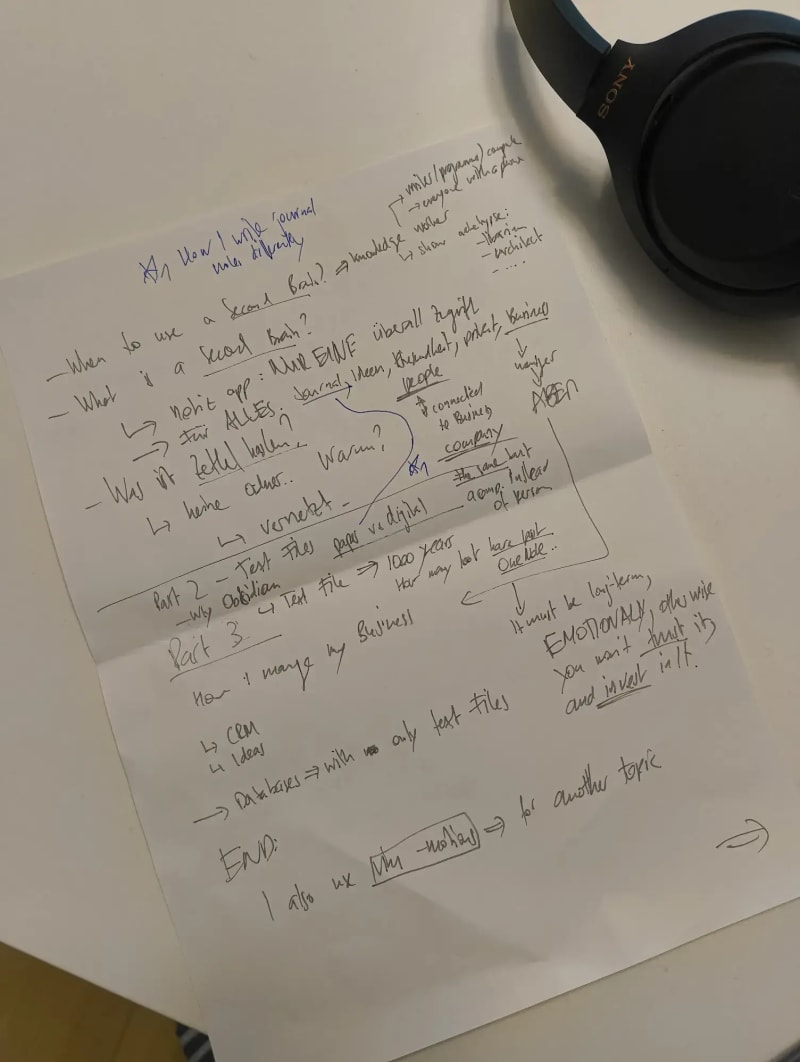 SONY
☆1 How I write journal
notes differently
→ writer/programmer/
→ everyone with a
- When to use a Second Brain? ⇒ knowledge worker
↳ show archetype:
- librarian
- architect
- ....
- What is a Second Brain?
↳ notiz app: NUR EINE überall Zugriff
→ Für ALLES: Journal, Ideen, , privat, Business
people
↑ connected
to Business
company
the same but
a comp. instead
of person
↓
manager
↓
- Was ist Zettelkasten?
↳ keine ordner.. Warum?
↳ vernetzt -
☆1
Part 2 - Text Files paper vs digital
- Why Obsidian
↳ Text File ⇒ 1000 years
How many lost have lost
OneNote..
↓
It must be long-term,
EMOTIONALLY, otherwise
you won't trust it,
and invest in it.
Part 3
How I manage my Business
↳ CRM
↳ Ideas
→ Databases ⇒ with only text Files
END:
I also use vim-motions ⇒ for another topic
⇒